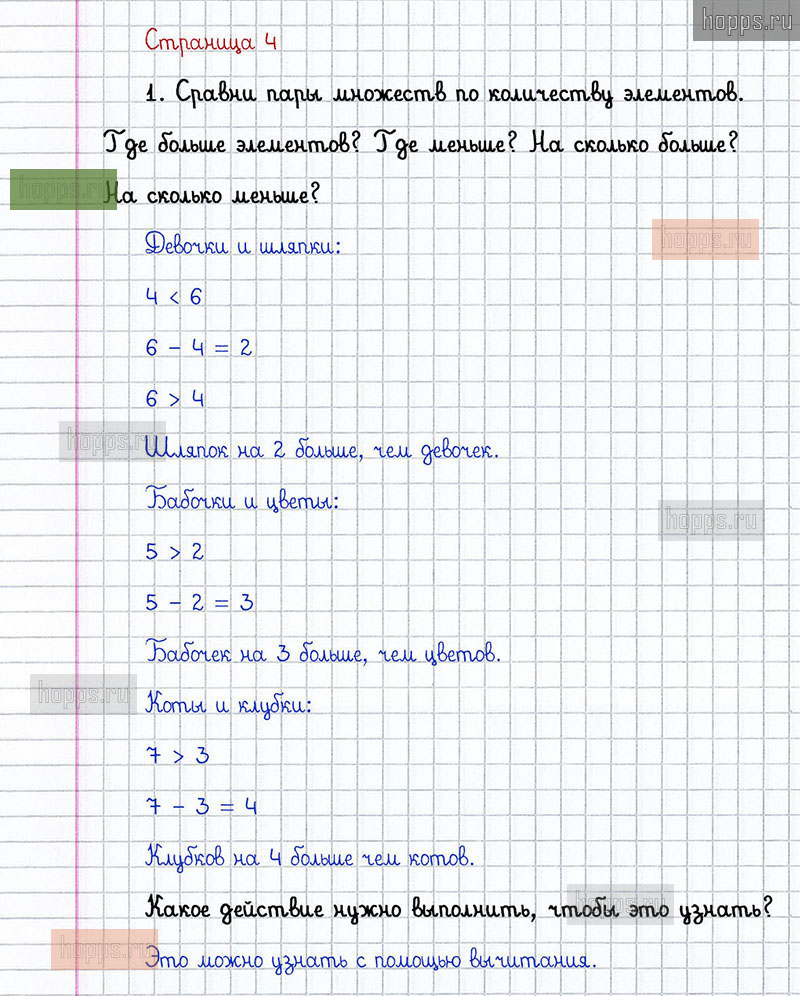 hopps.ru
Страница 4
1. Сравни пары множеств по количеству элементов.
Где больше элементов? Где меньше? На сколько больше?
hopps.ru
На сколько меньше?
hopps.ru
Девочки и шляпки:
4 < 6
6 - 4 = 2
6 > 4
hopps.ru
Шляпок на 2 больше, чем девочек.
Бабочки и цветы:
hopps.ru
5 > 2
5 - 2 = 3
Бабочек на 3 больше, чем цветов.
hopps.ru
Коты и клубки:
7 > 3
7 - 3 = 4
Клубков на 4 больше чем котов.
hopps.ru
Какое действие нужно выполнить, чтобы это узнать?
hopps.ru
Это можно узнать с помощью вычитания.